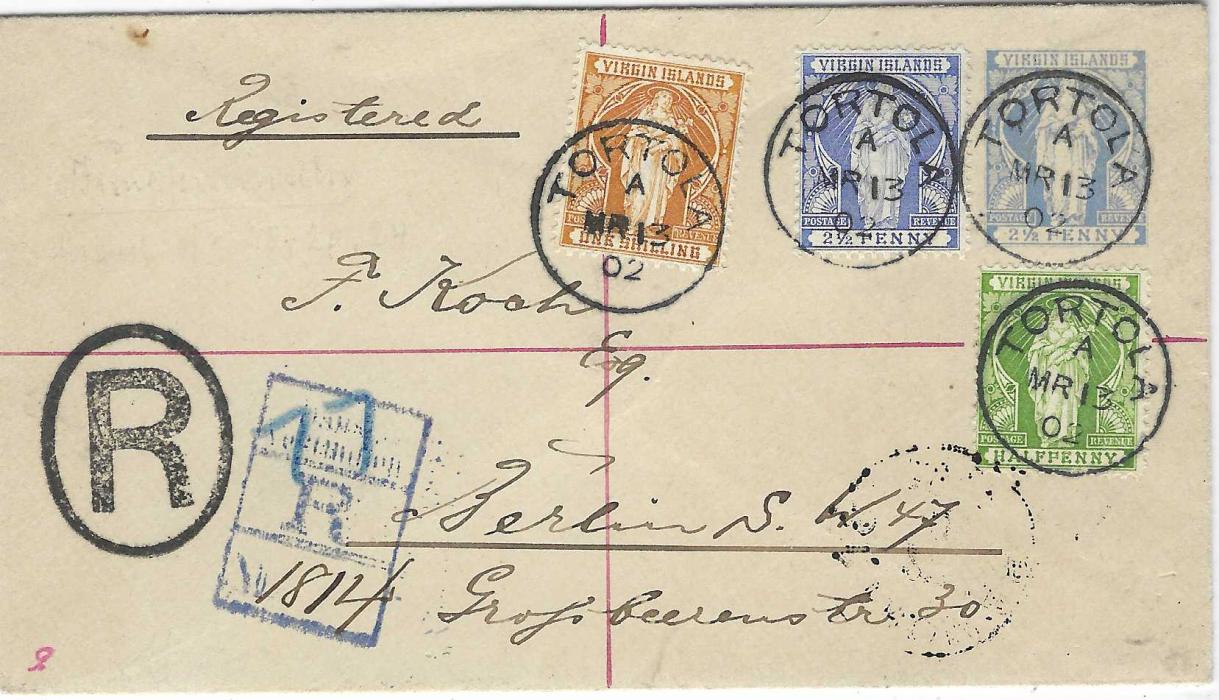 Registered
VIRGIN ISLANDS
POSTAGE REVENUE
ONE SHILLING
TORTOLA
A
MR 13
02
VIRGIN ISLANDS
POSTAGE REVENUE
2½ PENNY
TORTOLA
A
MR 13
02
VIRGIN ISLANDS
POSTAGE REVENUE
2½ PENNY
TORTOLA
A
MR 13
02
F. Koch
Esq.
VIRGIN ISLANDS
POSTAGE REVENUE
HALFPENNY
TORTOLA
A
MR 13
02
R
R
No 18114
Berlin S. W 47
Großbeerenstr 30